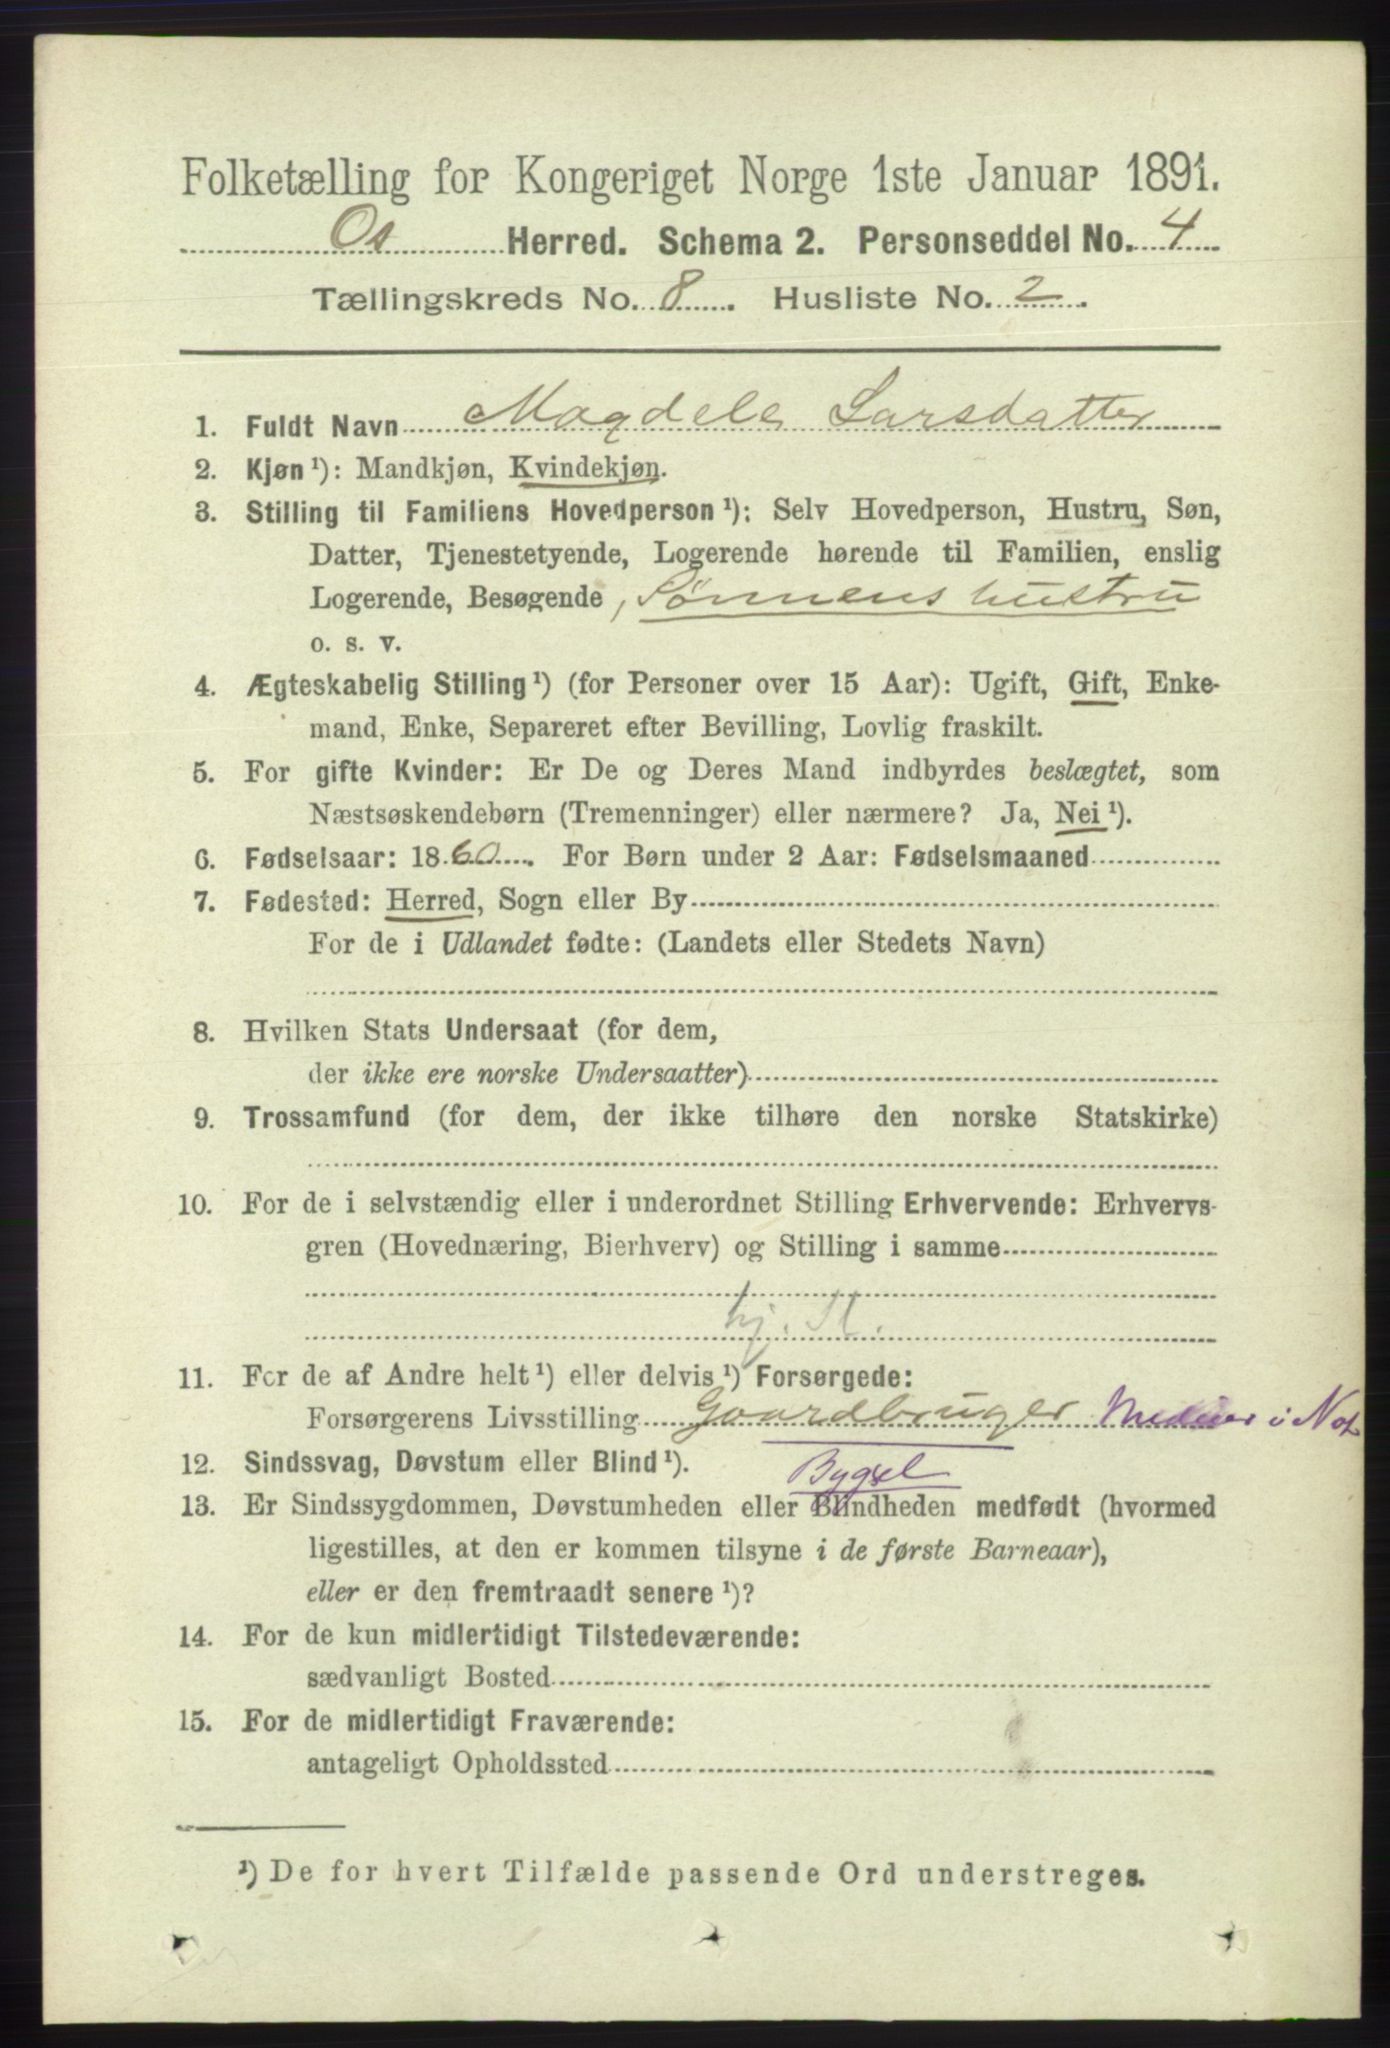 Folketælling for Kongeriget Norge 1ste Januar 1891.
Os Herred. Schema 2. Personseddel No. 4
Tællingskreds No. 8. Husliste No. 2.
1. Fuldt Navn Magdele Larsdatter
2. Kjøn ¹): Mandkjøn, Kvindekjøn.
3. Stilling til Familiens Hovedperson ¹): Selv Hovedperson, Hustru, Søn,
Datter, Tjenestetyende, Logerende hørende til Familien, enslig
Logerende, Besøgende, Sønnens hustru
o. s. v.
4. Ægteskabelig Stilling ¹) (for Personer over 15 Aar): Ugift, Gift, Enke-
mand, Enke, Separeret efter Bevilling, Lovlig fraskilt.
5. For gifte Kvinder: Er De og Deres Mand indbyrdes beslægtet, som
Næstsøskendebørn (Tremenninger) eller nærmere? Ja, Nei ¹).
6. Fødselsaar: 1860. For Børn under 2 Aar: Fødselsmaaned
7. Fødested: Herred, Sogn eller By
For de i Udlandet fødte: (Landets eller Stedets Navn)
8. Hvilken Stats Undersaat (for dem,
der ikke ere norske Undersaatter)
9. Trossamfund (for dem, der ikke tilhøre den norske Statskirke)
10. For de i selvstændig eller i underordnet Stilling Erhvervende: Erhvervs-
gren (Hovednæring, Bierhverv) og Stilling i samme
hj. St.
11. For de af Andre helt ¹) eller delvis ¹) Forsørgede:
Forsørgerens Livsstilling Gaardbruger i Not
Bygsel
12. Sindssvag, Døvstum eller Blind ¹).
13. Er Sindssygdommen, Døvstumheden eller Blindheden medfødt (hvormed
ligestilles, at den er kommen tilsyne i de første Barneaar),
eller er den fremtraadt senere ¹)?
14. For de kun midlertidigt Tilstedeværende:
sædvanligt Bosted
15. For de midlertidigt Fraværende:
antageligt Opholdssted
¹) De for hvert Tilfælde passende Ord understreges.